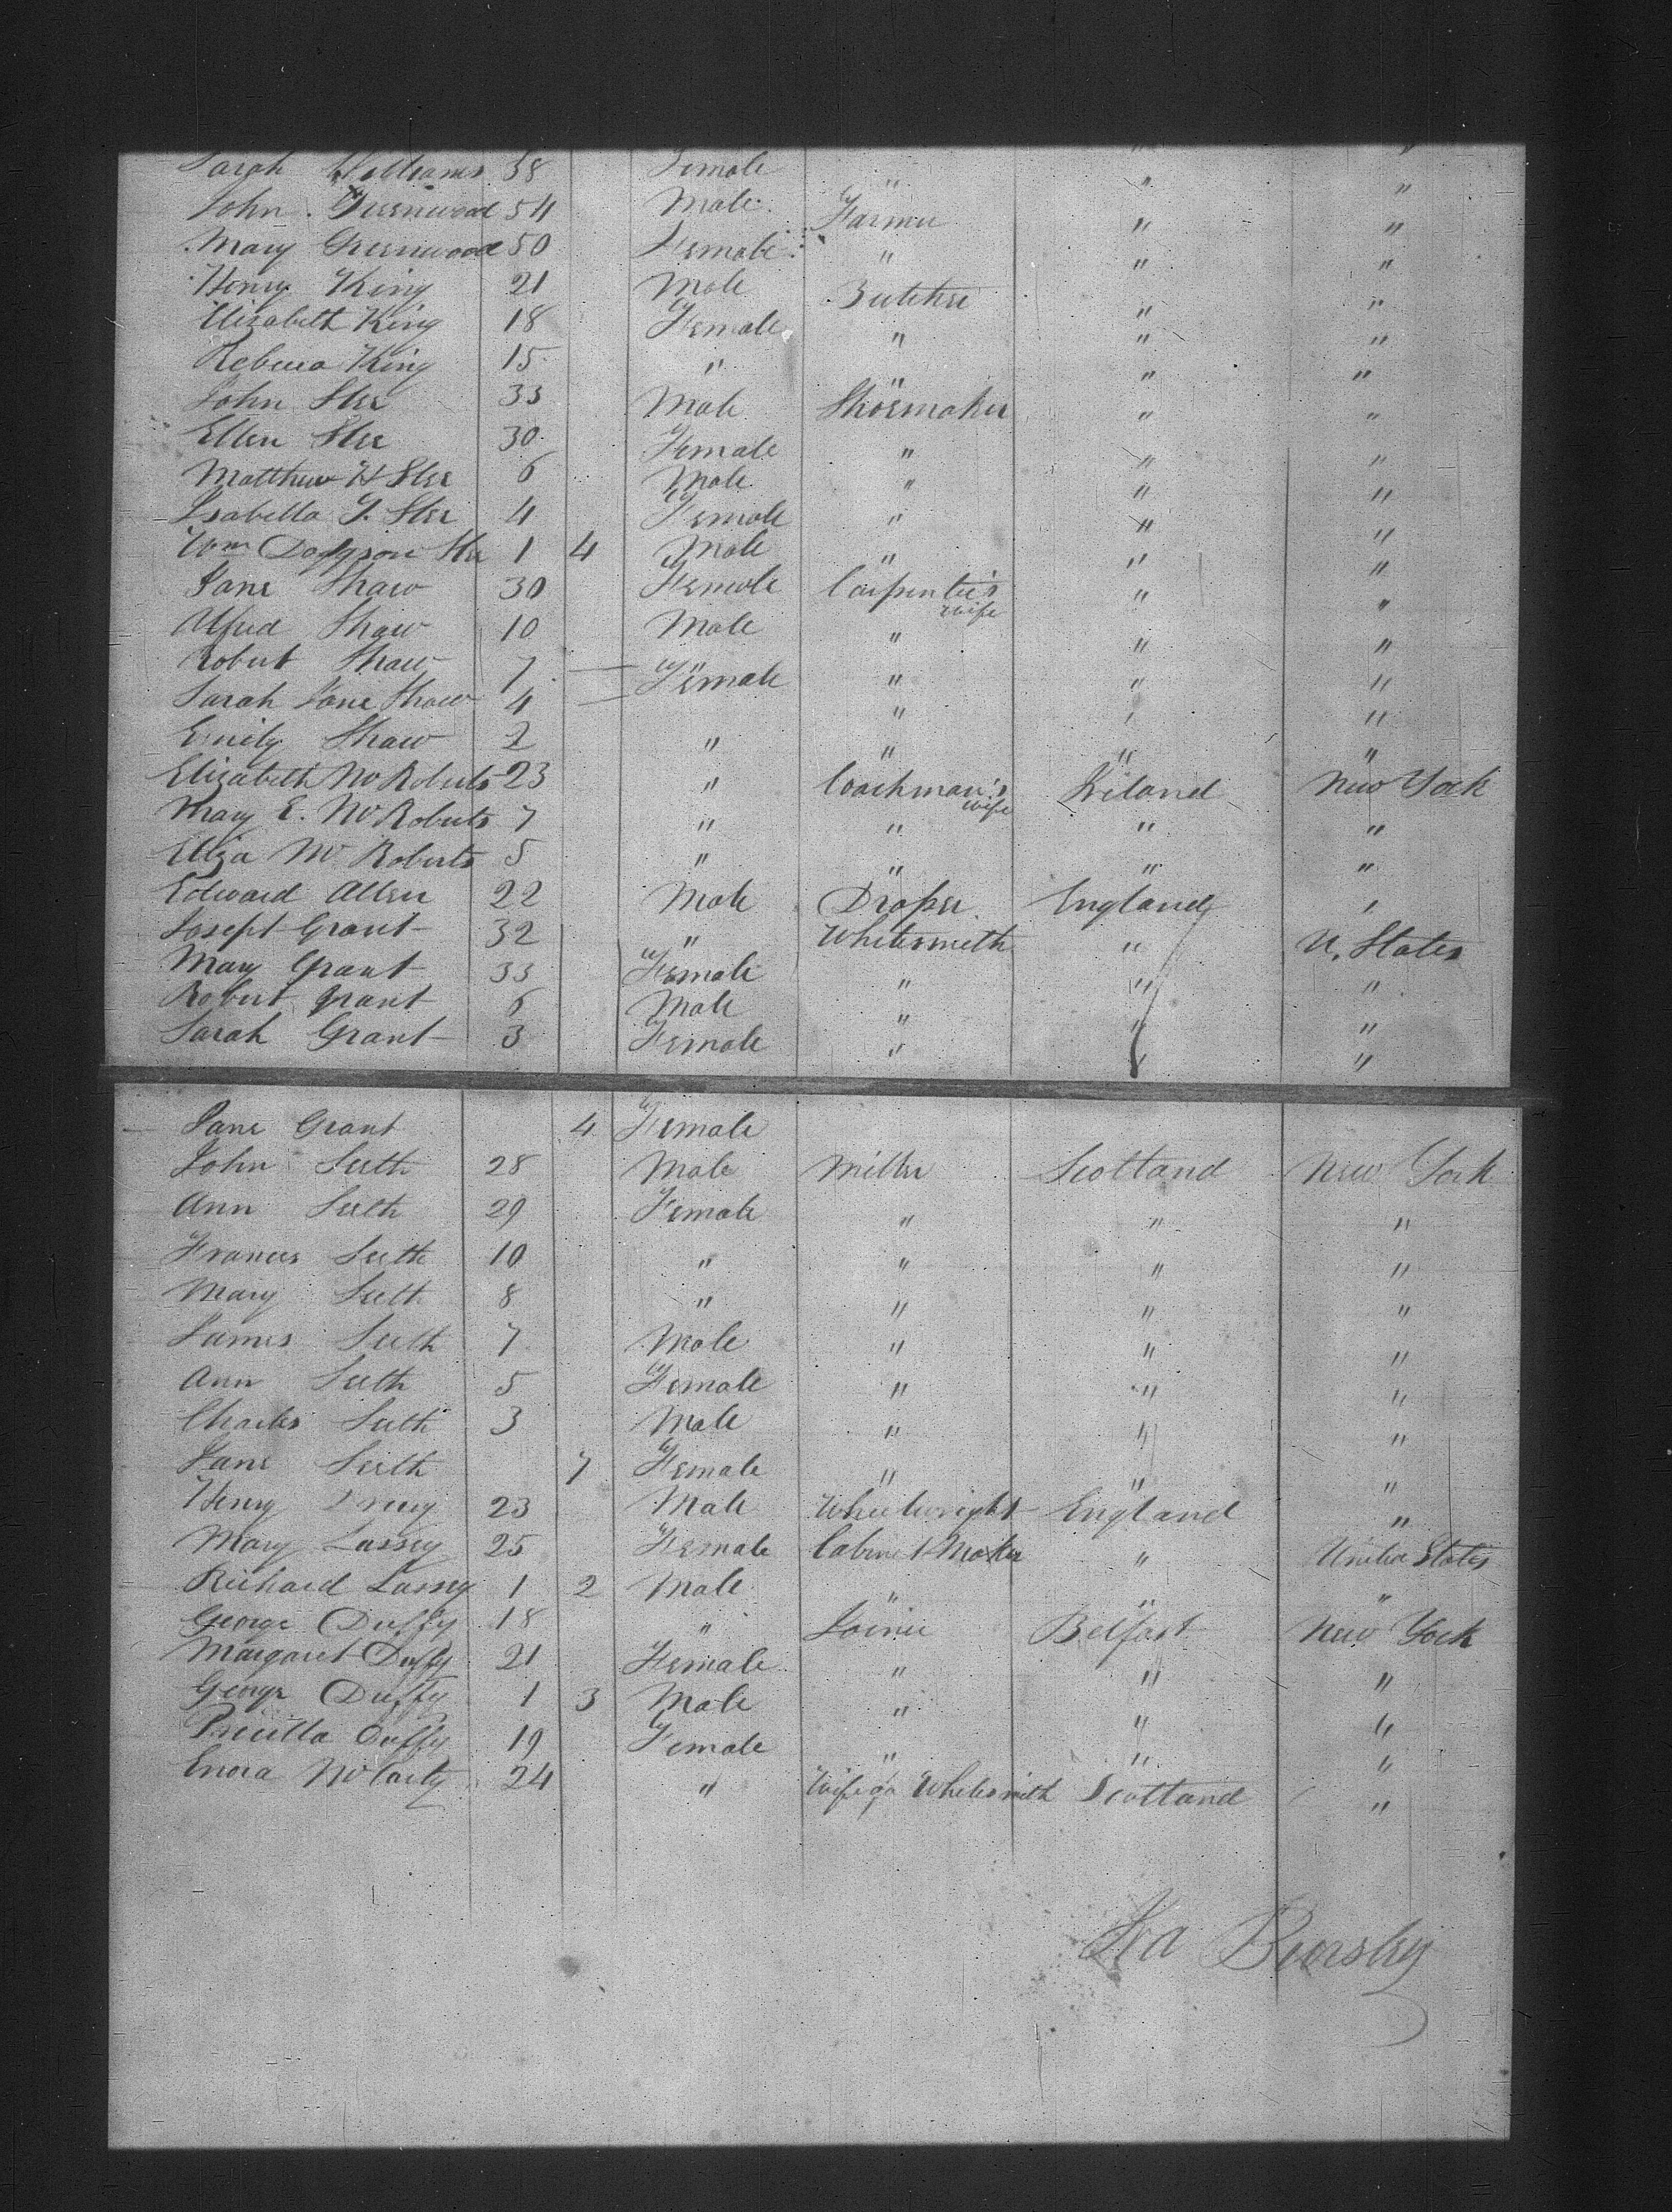 Sarah Williams 58 Female " " "
John Greenwood 54 Male Farmer " "
Mary Greenwood 50 Female " " "
Henry King 21 Male Butcher " "
Elizabeth King 18 Female " " "
Rebecca King 15 " " " "
John Slee 33 Male Shoemaker " "
Ellen Slee 30 Female " " "
Matthew H Slee 6 Male " " "
Isabella J. Slee 4 Female " " "
Wm Dodgson Slee 1 4 Male " " "
Jane Shaw 30 Female Carpenter's wife " "
Alfred Shaw 10 Male " " "
Robert Shaw 7 " " " "
Sarah Jane Shaw 4 Female " " "
Emily Shaw 2 " " " "
Elizabeth McRoberts 23 " Coachman's wife Ireland New York
Mary E. McRoberts 7 " " " "
Eliza McRoberts 5 " " " "
Edward Allen 22 Male Draper England "
Joseph Grant 32 " Whitesmith " U. States
Mary Grant 33 Female " " "
Robert Grant 6 Male " " "
Sarah Grant 3 Female " " "
Jane Grant 4 Female
John Seith 28 Male Miller Scotland New York
Ann Seith 29 Female " " "
Frances Seith 10 " " " "
Mary Seith 8 " " " "
James Seith 7 Male " " "
Ann Seith 5 Female " " "
Charles Seith 3 Male " " "
Jane Seith 7 Female " " "
Henry 23 Male Wheelwright England "
Mary Lassey 25 Female Cabinet Maker " United States
Richard Lassey 1 2 Male " " "
George Duffy 18 " Joiner Belfast New York
Margaret Duffy 21 Female " " "
George Duffy 1 3 Male " " "
Precilla Duffy 19 Female " " "
Enora McCarty 24 " Wife of Whitesmith Scotland "